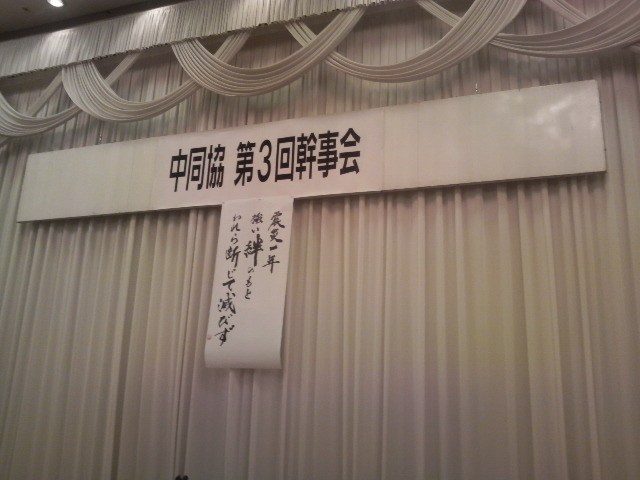 中同協 第3回幹事会
震災一年
強い絆のもと
われら断じて滅びず